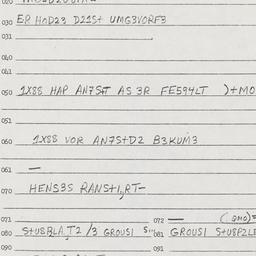 030 ER HND23 D21St UMG3VORF3
031
040
041
050 1X8S HAP AN7St AS 3R FE594LT )+MO
051
060 1X8S VOR AN7S+D2 B3KUM3
061 —
070 HENS3S RANSt1,RT—
071 072 —
080 S+US8LA,T2 /3 GROUS1 081 GROUS1
090 091